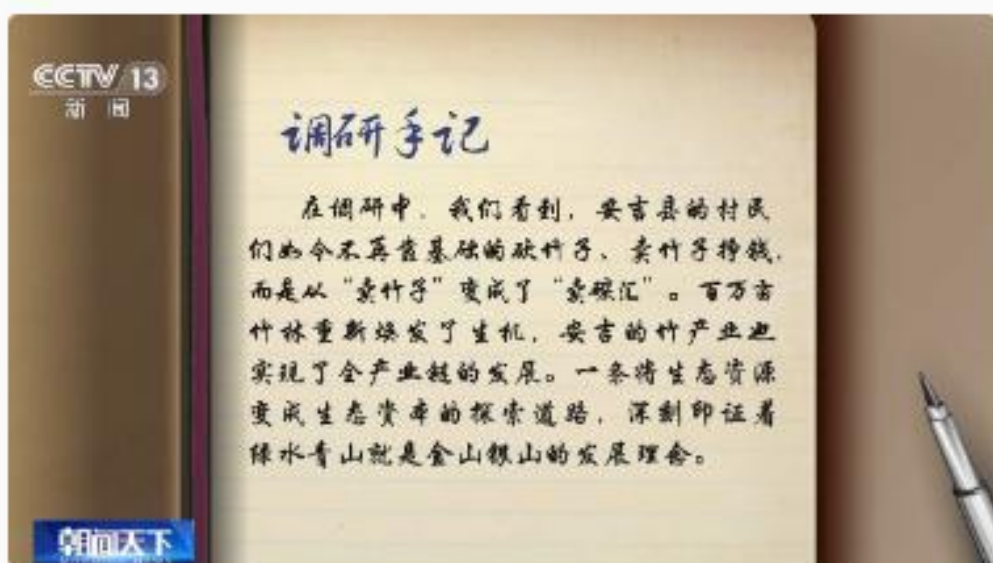 CCTV 13
新闻
调研手记
在调研中，我们看到，安吉县的村民
们如今不再靠基础的砍竹子、卖竹子挣钱，
而是从“卖竹子”变成了“卖碳汇”。百万亩
竹林重新焕发了生机，安吉的竹产业也
实现了全产业链的发展。一条将生态资源
变成生态资本的探索道路，深刻印证着
绿水青山就是金山银山的发展理念。
朝闻天下